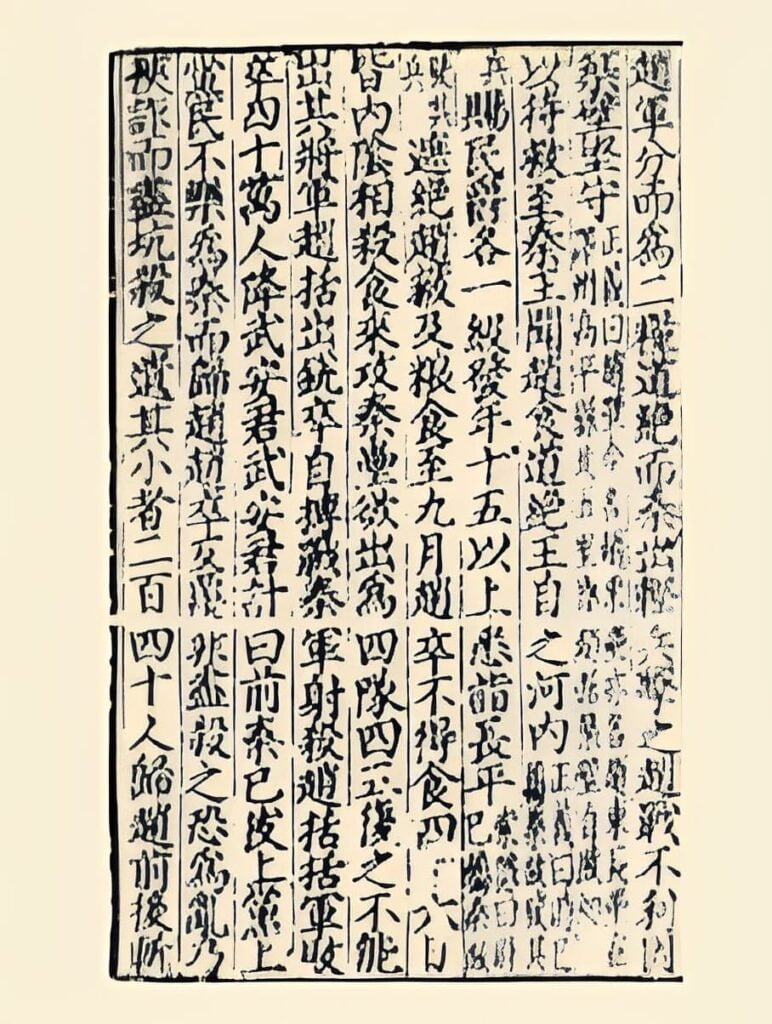 趙軍分而爲二糧道絕而秦出輕兵擊之趙戰不利因
築壁堅守正義曰
以待救至秦王聞趙食道絕王自之河內正義曰時已屬秦故發其
兵賜民爵各一級發年十五以上悉詣長平
兵遮絕趙救及糧食至九月趙卒不得食四十六日
皆內陰相殺食來攻秦壘欲出爲四隊四五復之不能
出其將軍趙括出銳卒自搏戰秦軍射殺趙括括軍敗
卒四十萬人降武安君武安君計曰前秦已拔上黨上
黨民不樂爲秦而歸趙趙卒反覆非盡殺之恐爲亂乃
挾詐而盡坑殺之遺其小者二百四十人歸趙前後斬